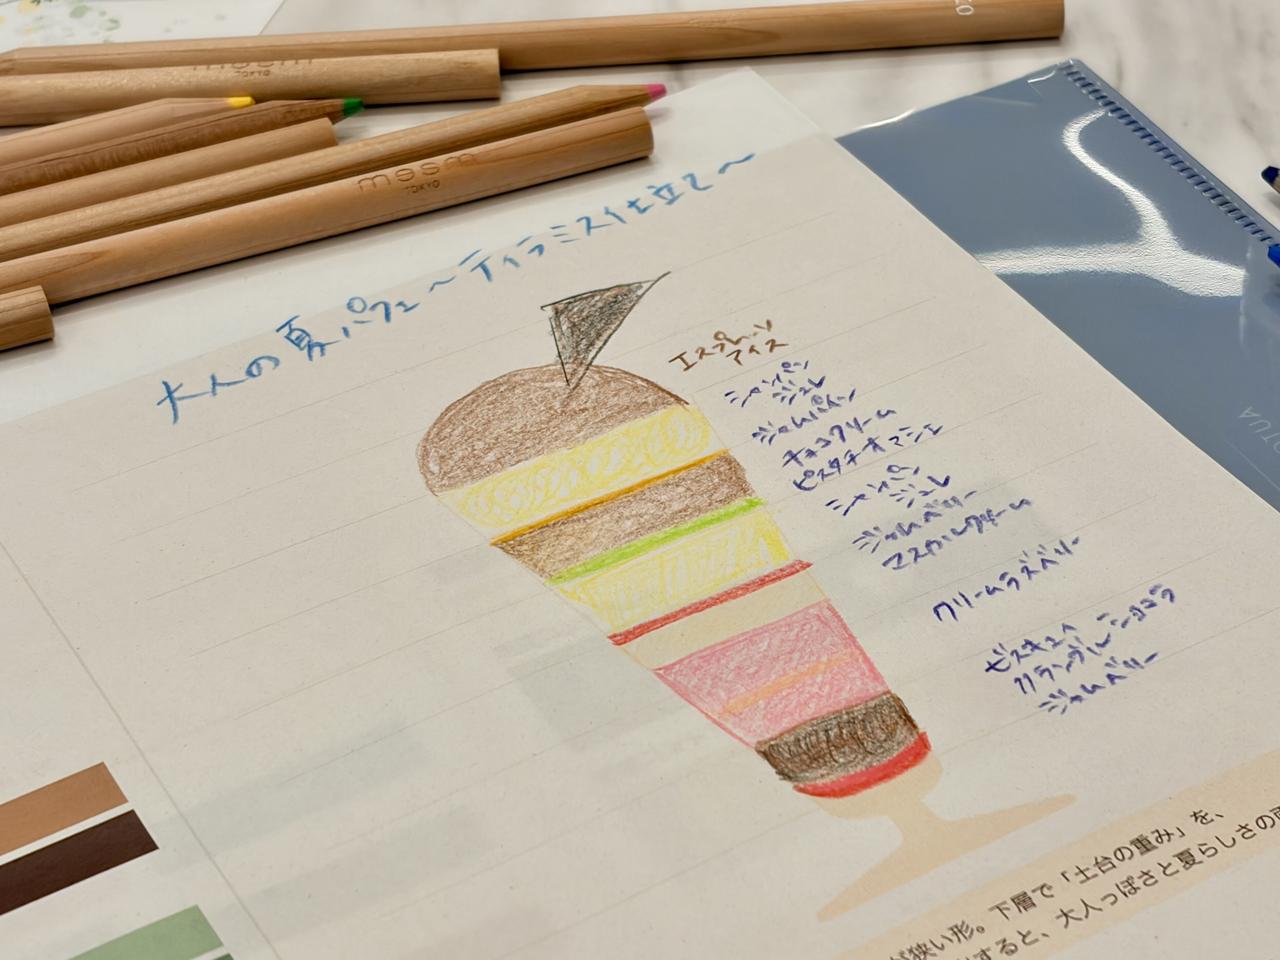 mesm
TOKYO
mesm
TOKYO
大人の夏パフェ～ティラミス仕立て～
エスプレッソ
アイス
シャンパン
ジュレ
ジャムパイン
チョコクリーム
ピスタチオマシェ
シャンパン
ジュレ
ジャムベリー
マスカルクリーム
クリームラズベリー
ビスキュイ
クランブルショコラ
ジャムベリー
が狭い形。下層で「土台の重み」を、
すると、大人っぽさと夏らしさの両